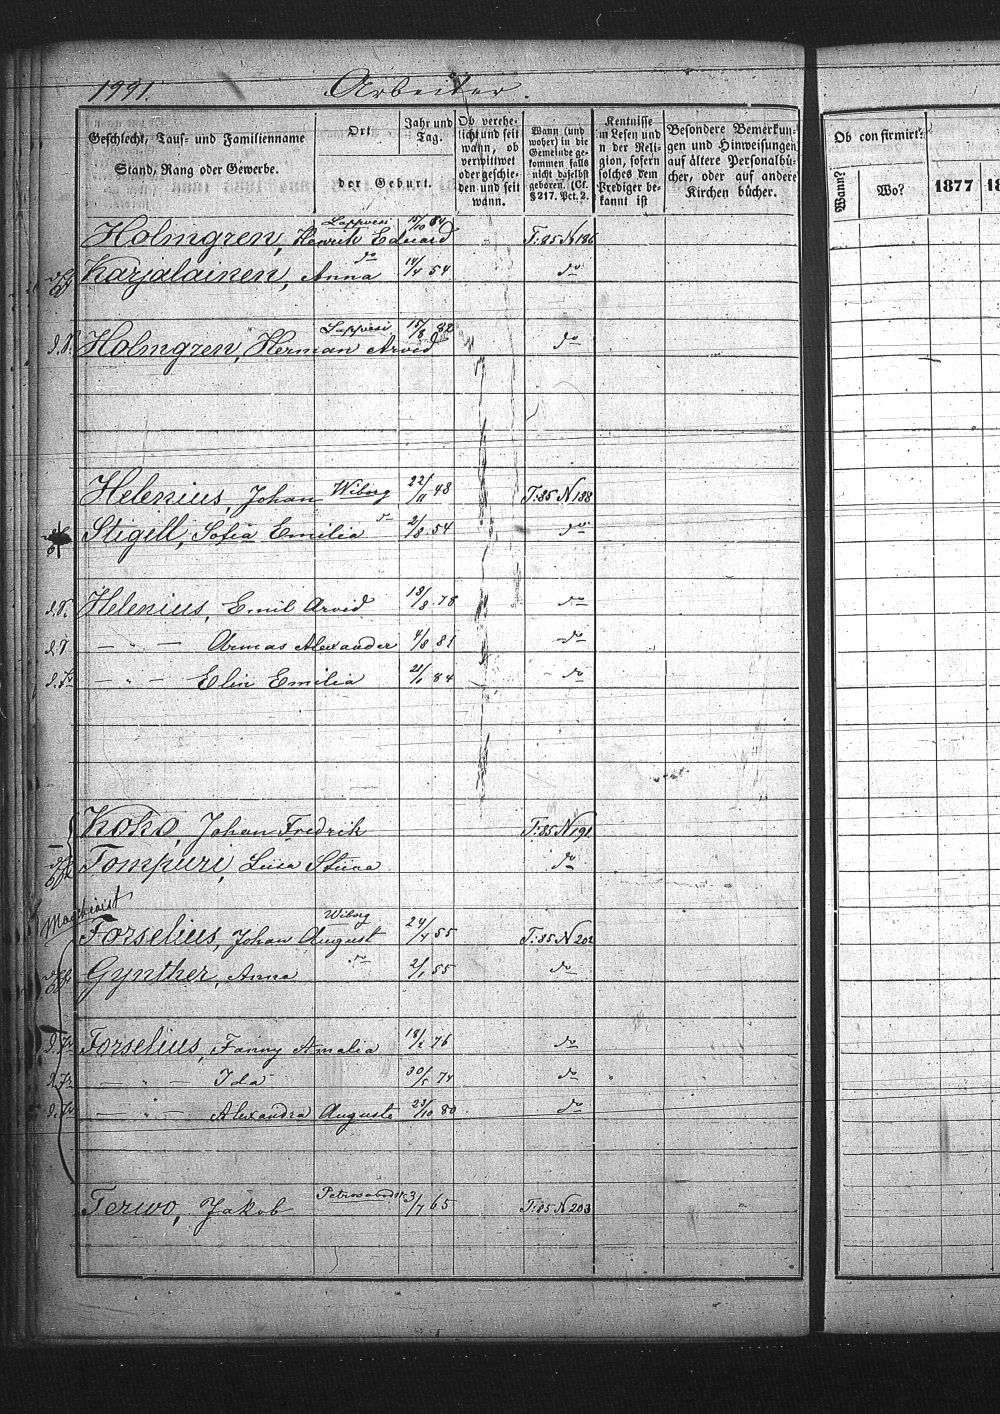 1991. Arbeiter.
Geschlecht, Tauf- und Familienname Stand, Rang oder Gewerbe.
Ort der Geburt.
Jahr und Tag.
Ob verehelicht und seit wann, ob verwittwet oder geschieden und seit wann.
Wann (und woher) in die Gemeinde gekommen falls nicht daselbst geboren. (Cf. § 217. Pct. 2.
Kentnisse in Lesen und in der Religion, sofern solches dem Prediger bekannt ist
Besondere Bemerkungen und Hinweisungen auf ältere Personalbücher, oder auf andere Kirchen bücher.
Ob confirmirt:
Wann? Wo? 1877
Holmgren, Henrik Eduard Lappvesi T: 85 N 186
Karjalainen, Anna do 14/4 54 do
d. S. Holmgren, Herman Arvid Lappvesi 15/8 82 do
Helenius, Johan Wiborg 22/11 48 T: 85 N 188
Stigell, Sofia Emilia do 2/8 54 do
d. S. Helenius, Emil Arvid 13/8 78 do
d. S. — „ — Armas Alexander 4/8 81 do
d. Tr — „ — Elin Emilia 21/1 84 do
Koho, Johan Fredrik T: 85 N 191
Tompuri, Liisa Stiina do
Maschinist
Forselius, Johan August Wiborg 24/4 55 T: 85 N 202
Gynther, Anna do 2/1 55 do
d. Tr Forselius, Fanny Amalia 18/2 76 do
d. Tr — „ — Ida 30/5 74 do
d. Tr — „ — Alexandra Augusta 23/10 80 do
Terwo, Jakob 3/7 65 T: 85 N 203